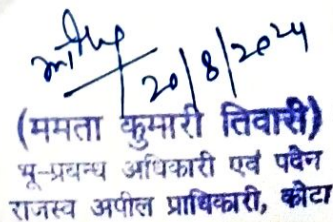 20/8/2024
(ममता कुमारी तिवारी)
भू-प्रबन्ध अधिकारी एवं पदेन
राजस्व अपील प्राधिकारी, कोटा